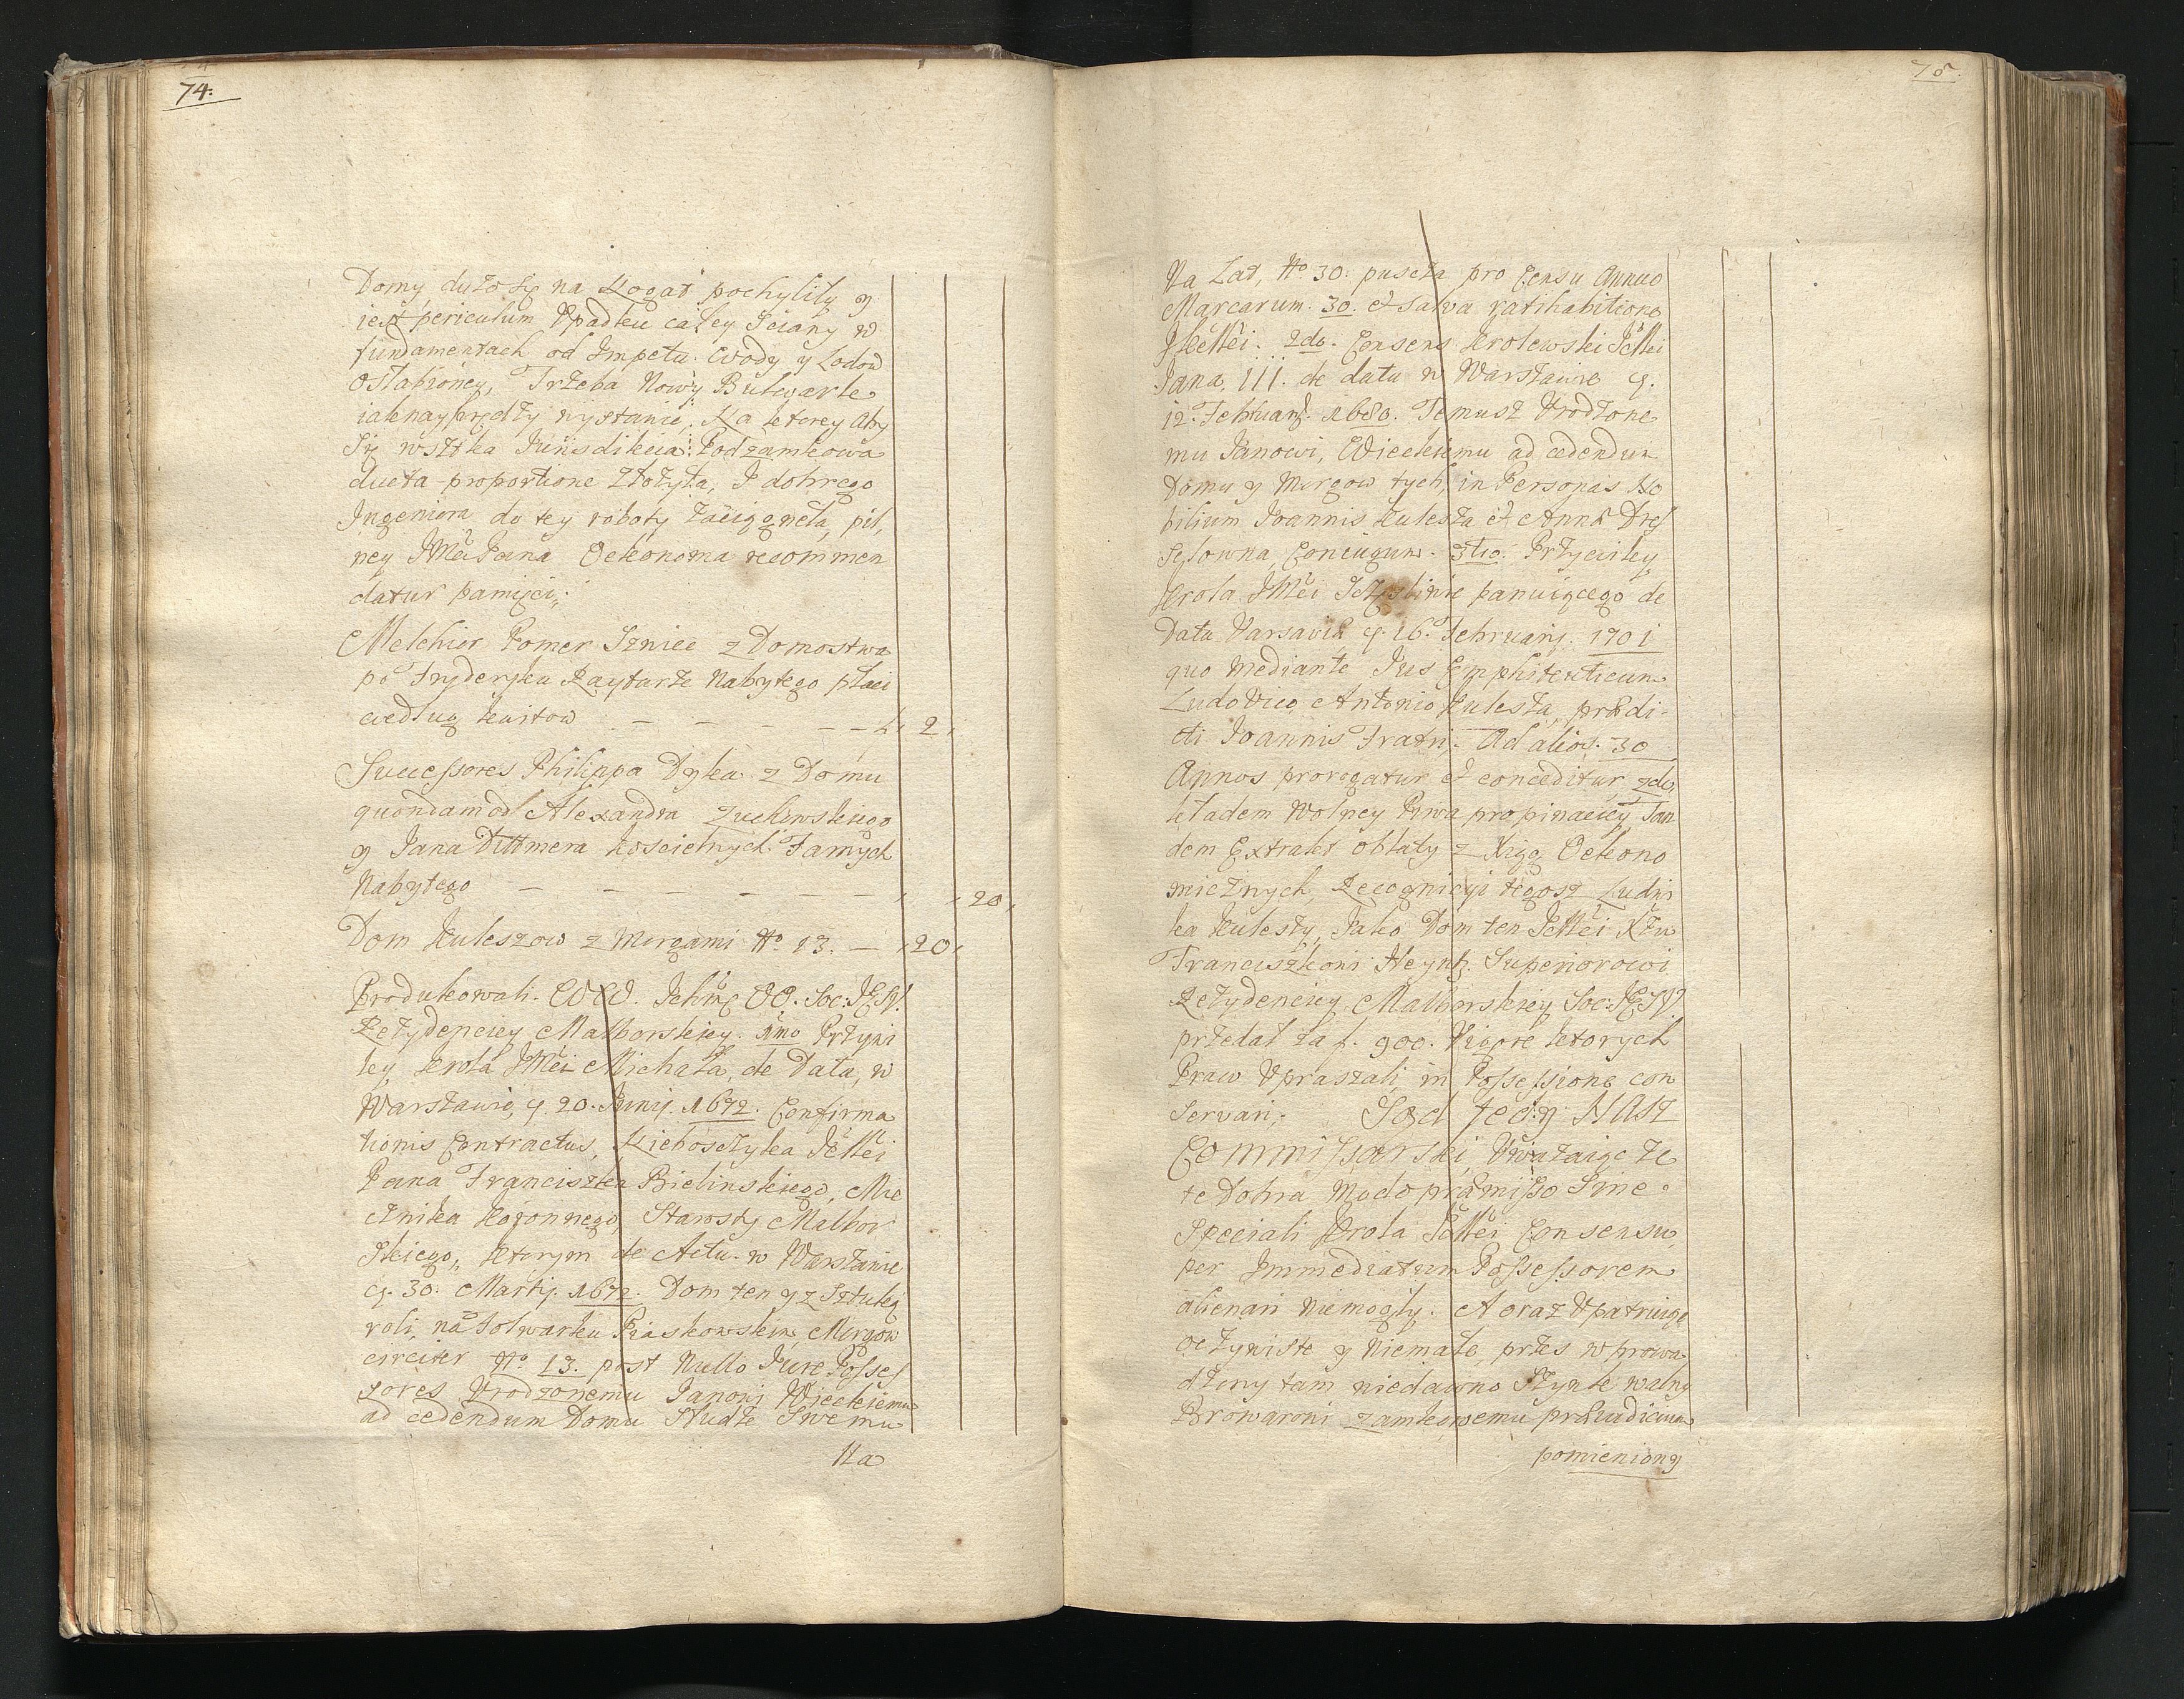 74.
Domy dużo się na Nogat pochyliły y
iest periculum Upadku całey Sciany w
fundamentach od Impetu Wody y Lodow
Osłabioney, Trzeba Nowy Bulwark
iak nayprędzy wystawić, Na ktorey Aby
Się wsztka Jurisdikcia Podzamkowa
ducta proportione Złożyła, I dobrego
Ingeniera do tey roboty Zaciągneła, pil,
ney JMci Pana Oekonoma recommen
datur pamięci.
Melchior Pomer Szniec z Domostwa
po Fryderyka Raytarze Nabytego płaci
według kwitow — — — — — 2,
Successores Philippa Dyka z Domu
quondam od Alexandra Zuckiwskiego
y Jana Dittmera koscielnych Farnych
Nabytego — — — — — — , , 20,
Dom Kuleszow z Morgami No 13. — , 20,
Produkowali WW. Ichmć OO. Soc: JESV.
Rezydenciey Malborskiey. 1mo Przywi
ley krola JMci Michała, de Data, w
Warszawie, d. 20. Junij. 1672. Confirma
tionis Contractus, Nieboszczyka JeMci
Pana Franciszka Bielinskiego, Mie
cznika Koronnego, Starosty Malbor
Skiego, ktorym de Actu w Warszawie
d. 30. Martij. 1672. Dom ten y z Sztuką
roli na folwarku Piaskowskim, Morgow
circiter No 13. post Nullo Iure Posses
sores Vrodzonemu Janowi Wieckiemu
ad cedendum Domu Słudze Swemu
Na
75.
Na Lat, No 30. puscza pro Censu Annuo
Marcarum 30. et salva ratihabitione
JKMci. 2do. Consens krolewski JeMci
Jana III. de data w Warszawie d.
12. Februarij 1680. Temusz Vrodzone
mu Janowi, Wieckiemu ad cedendum
Domu y Morgow tych, in Personas No
bilium Joannis Kulesza et Anna Dres
Selowna Coniugum. 3tio. Przywiley
krola JMci Szczesliwie panuiącego de
Data Varsaviæ d. 16. February. 1701
quo mediante Ius Emphiteuticum
Ludovico Antonio Kulesza, prædi,
cti Joannis Fratri. Ad alios 30
Annos prorogatur et conceditur, zdo,
kładem Wolney Piwa propinaciey Tan
dem Extrakt oblaty z Xiąg Oekono
micznych, Recognicyi tegosz Ludwi
ka Kuleszy, Jako Dom ten JeMci Xzu
Franciszkowi Heyntz Superiorowi
Rezydenciey Malborskiey Soc: JESV.
przedał za f. 900. Wiąpre ktorych
Praw Upraszali, in Possessione con
servari. Sąd tedy NASZ
Commissarski, Uważaiąc że
te Dobra Modo præmisso Sine
Speciali krola JeMci Consensu,
per Immediatum Possessorem
alienari niemogły. A oraz Upatruiąc
oczywiste y Niemałe, przes wprowa
dzony tam niedawno Szynk walny
Browarowi zamkowemu præiudicium
pomieniony